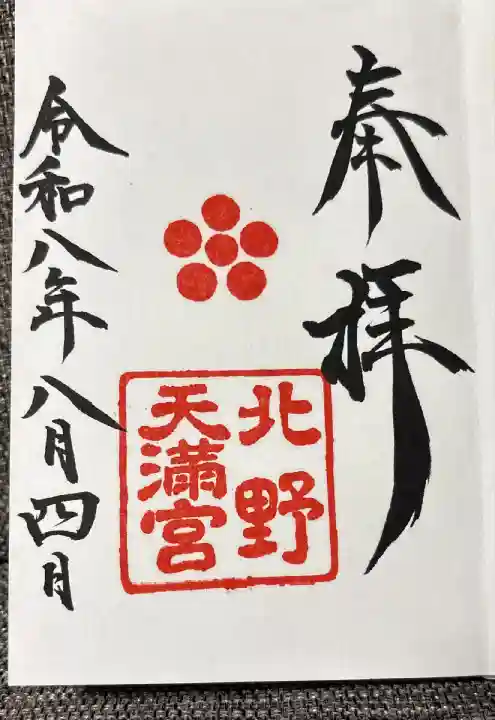 奉拝
北野
天満宮
令和八年八月四日